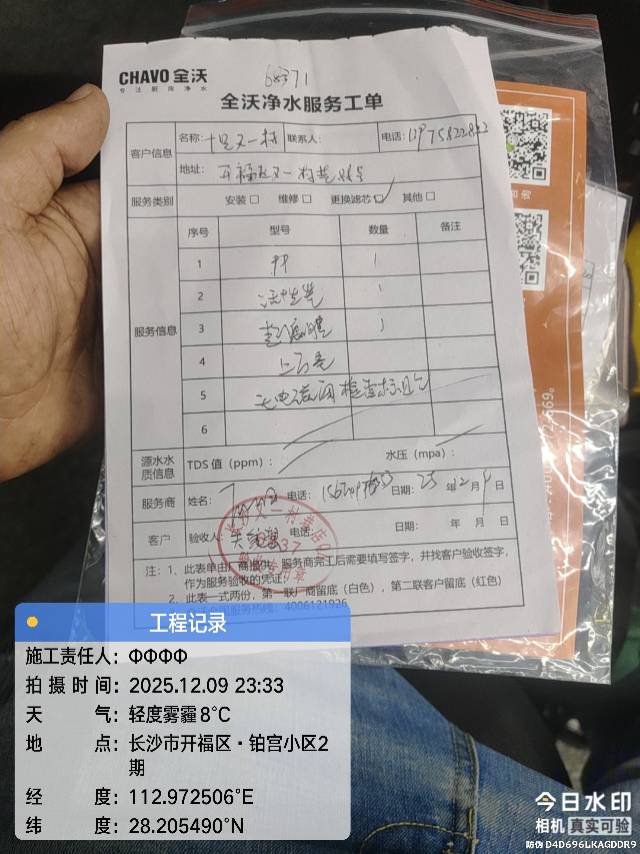 CHAVO 全沃
专注厨房净水
68371
全沃净水服务工单
客户信息
名称: 十里又一村 联系人: 电话:
地址: 开福区又一村
服务类别 安装□ 维修□ 更换滤芯☑ 其他□
服务信息
序号 型号 数量 备注
1 PP 1
2 活性炭 1
3 超滤膜 1
4
5 无电磁阀 检查
6
源水水质信息 TDS 值(ppm): 水压(mpa):
服务商 姓名: 电话: 日期: 25 年 12 月 9 日
客户 验收人: 电话: 日期: 年 月 日
注: 1、此表单由厂商提供,服务商完工后需要填写签字,并找客户验收签字,
作为服务验收的凭证;
2、此表一式两份,第一联厂商留底(白色),第二联客户留底(红色)
4006121926
工程记录
施工责任人: ФФФФ
拍摄时间: 2025.12.09 23:33
天气: 轻度雾霾 8℃
地点: 长沙市开福区·铂宫小区2
期
经度: 112.972506°E
纬度: 28.205490°N
今日水印
相机 真实可验
防伪 D4D696LKAGDDR9